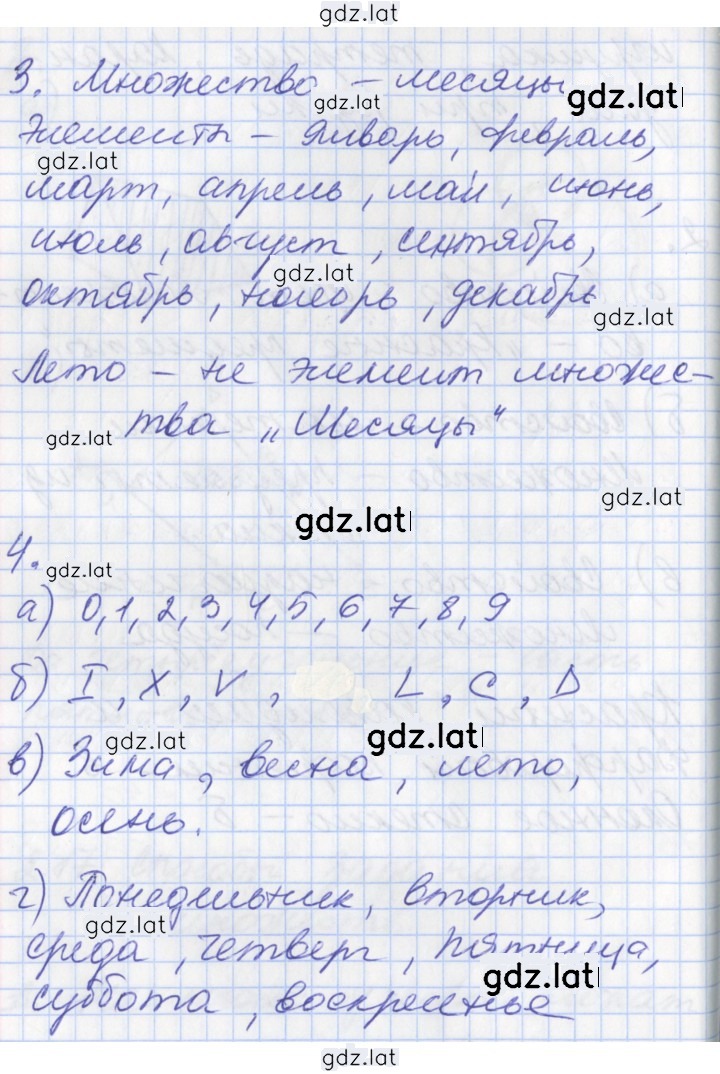 gdz.lat
3. Множество – месяцы
gdz.lat gdz.lat
Элементы – Январь, февраль,
gdz.lat
март, апрель, май, июнь,
июль, август, сентябрь,
gdz.lat
октябрь, ноябрь, декабрь
gdz.lat
Лето – не элемент множес-
gdz.lat тва „Месяцы"
gdz.lat
gdz.lat
4.
gdz.lat
а) 0, 1, 2, 3, 4, 5, 6, 7, 8, 9
б) I, X, V, L, C, D
gdz.lat gdz.lat
в) Зима, весна, лето,
осень.
г) Понедельник, вторник,
gdz.lat
среда, четверг, пятница,
gdz.lat
суббота, воскресенье
gdz.lat